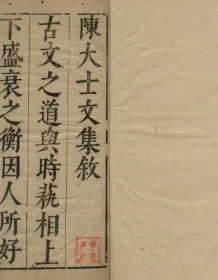 陳大士文集敘
古文之道與時藝相上
下盛衰之衡因人所好